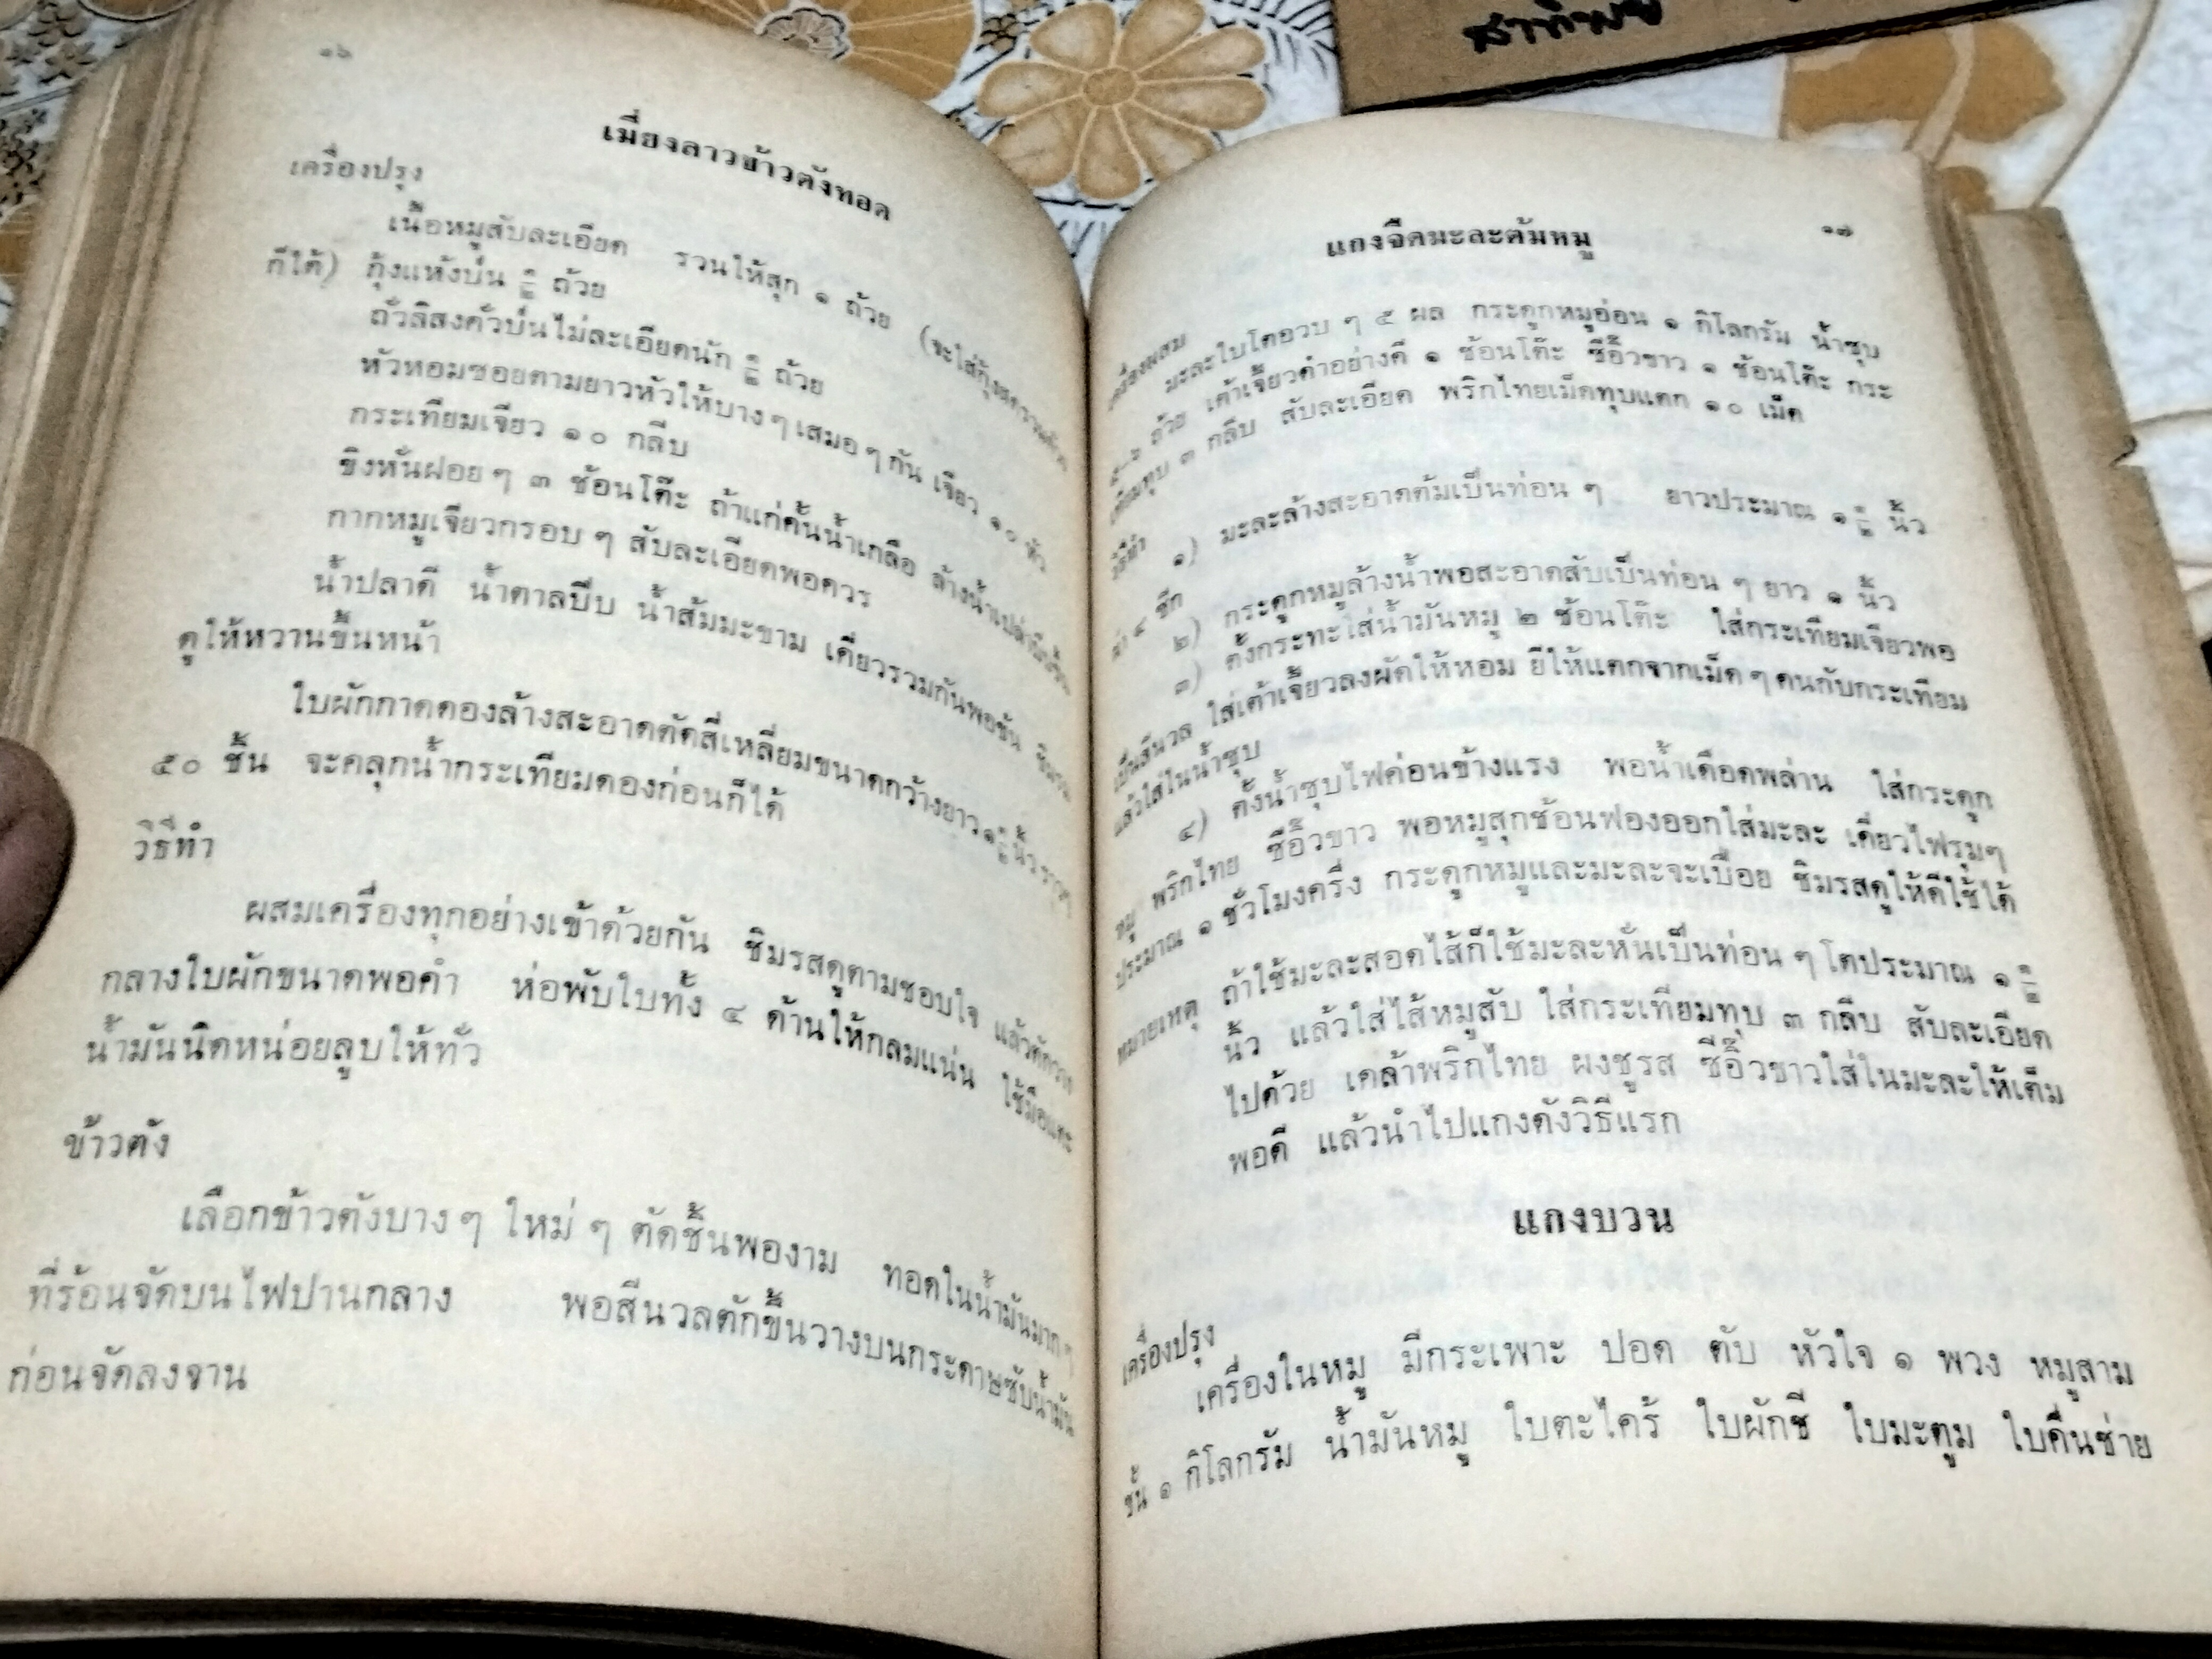 ๑๖
เมี่ยงลาวข้าวตังทอด
เครื่องปรุง
เนื้อหมูสับละเอียด รวนให้สุก ๑ ถ้วย (จะใส่กุ้งสด
ก็ได้) กุ้งแห้งป่น ๑/๒ ถ้วย
ถั่วลิสงคั่วป่นไม่ละเอียดนัก ๑/๒ ถ้วย
หัวหอมซอยตามยาวหัวให้บาง ๆ เสมอ ๆ กัน เจียว ๑๐ หัว
กระเทียมเจียว ๑๐ กลีบ
ขิงหั่นฝอย ๆ ๓ ช้อนโต๊ะ ถ้าแก่คั้นน้ำเกลือ ล้างน้ำเปล่า
กากหมูเจียวกรอบ ๆ สับละเอียดพอควร
น้ำปลาดี น้ำตาลปีบ น้ำส้มมะขาม เคี่ยวรวมกันพอข้น ชิมรส
ดูให้หวานขึ้นหน้า
ใบผักกาดดองล้างสะอาดตัดสี่เหลี่ยมขนาดกว้างยาว ๑ ๑/๒ นิ้ว
๕๐ ชิ้น จะคลุกน้ำกระเทียมดองก่อนก็ได้
วิธีทำ
ผสมเครื่องทุกอย่างเข้าด้วยกัน ชิมรสดูตามชอบใจ แล้วตักวาง
กลางใบผักขนาดพอคำ ห่อพับใบทั้ง ๔ ด้านให้กลมแน่น ใช้มือแตะ
น้ำมันนิดหน่อยลูบให้ทั่ว
ข้าวตัง
เลือกข้าวตังบาง ๆ ใหม่ ๆ ตัดชิ้นพองาม ทอดในน้ำมันมาก ๆ
ที่ร้อนจัดบนไฟปานกลาง พอสีนวลตักขึ้นวางบนกระดาษซับน้ำมัน
ก่อนจัดลงจาน
๑๗
แกงจืดมะละต้มหมู
เครื่องผสม
มะละใบโตอวบ ๆ ๕ ผล กระดูกหมูอ่อน ๑ กิโลกรัม น้ำซุบ
๕-๖ ถ้วย เต้าเจี้ยวดำอย่างดี ๑ ช้อนโต๊ะ ซีอิ๊วขาว ๑ ช้อนโต๊ะ กระ
เทียมทุบ ๓ กลีบ สับละเอียด พริกไทยเม็ดทุบแตก ๑๐ เม็ด
วิธีทำ
๑) มะละล้างสะอาดต้มเป็นท่อน ๆ ยาวประมาณ ๑ ๑/๒ นิ้ว
ผ่า ๔ ซีก
๒) กระดูกหมูล้างน้ำพอสะอาดสับเป็นท่อน ๆ ยาว ๑ นิ้ว
๓) ตั้งกระทะใส่น้ำมันหมู ๒ ช้อนโต๊ะ ใส่กระเทียมเจียวพอ
เป็นสีนวล ใส่เต้าเจี้ยวลงผัดให้หอม ยีให้แตกจากเม็ด ๆ คนกับกระเทียม
แล้วใส่ในน้ำซุบ
๔) ตั้งน้ำซุบไฟค่อนข้างแรง พอน้ำเดือดพล่าน ใส่กระดูก
หมู พริกไทย ซีอิ๊วขาว พอหมูสุกช้อนฟองออกใส่มะละ เคี่ยวไฟรุมๆ
ประมาณ ๑ ชั่วโมงครึ่ง กระดูกหมูและมะละจะเปื่อย ชิมรสดูให้ดีใช้ได้
หมายเหตุ ถ้าใช้มะละสอดไส้ก็ใช้มะละหั่นเป็นท่อน ๆ โตประมาณ ๑ ๑/๒
นิ้ว แล้วใส่ไส้หมูสับ ใส่กระเทียมทุบ ๓ กลีบ สับละเอียด
ไปด้วย เคล้าพริกไทย ผงชูรส ซีอิ๊วขาวใส่ในมะละให้เต็ม
พอดี แล้วนำไปแกงดังวิธีแรก
แกงบวน
เครื่องปรุง
เครื่องในหมู มีกระเพาะ ปอด ตับ หัวใจ ๑ พวง หมูสาม
ชั้น ๑ กิโลกรัม น้ำมันหมู ใบตะไคร้ ใบผักชี ใบมะตูม ใบคื่นช่าย